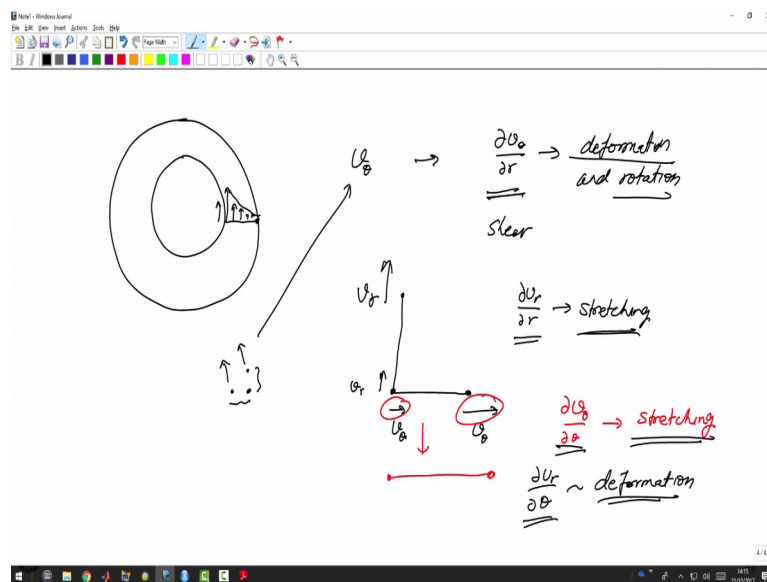 Note1 - Windows Journal
File Edit View Insert Actions Tools Help
Page Width
B I
υ_θ → ∂υ_θ/∂r → deformation
and rotation
shear
υ_r
∂υ_r/∂r → stretching
υ_r
υ_θ υ_θ
∂υ_θ/∂θ → stretching
∂υ_r/∂θ ~ deformation
4/4
14:15
21/12/2017